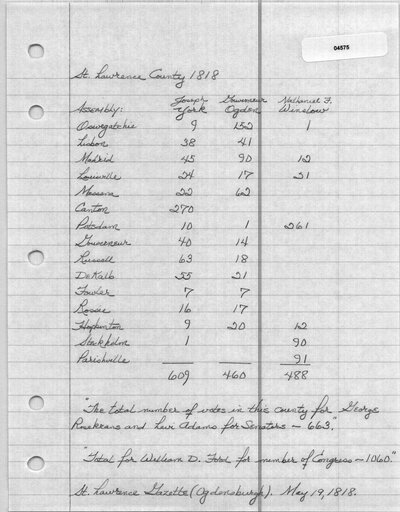 04575
St. Lawrence County 1818
Joseph Gouverneur Nathaniel F.
Assembly: York Ogden Winslow
Oswegatchie 9 152 1
Lisbon 38 41
Madrid 45 90 12
Louisville 24 17 21
Massena 22 62
Canton 270
Potsdam 10 1 261
Gouverneur 40 14
Russell 63 18
DeKalb 55 21
Fowler 7 7
Rossie 16 17
Hopkinton 9 20 12
Stockholm 1 90
Parishville 91
609 460 488
"The total number of votes in this county for George
Rosekrans and Levi Adams for Senators – 663."
"Total for William D. Ford for member of Congress – 1060."
St. Lawrence Gazette (Ogdensburgh). May 19, 1818.